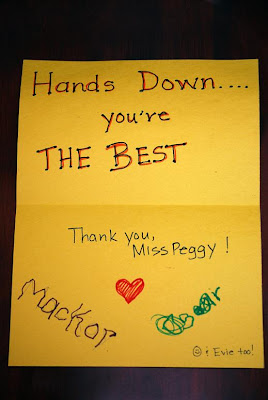 Hands Down....
you're
THE BEST
Thank you,
Miss Peggy !
& Evie too!